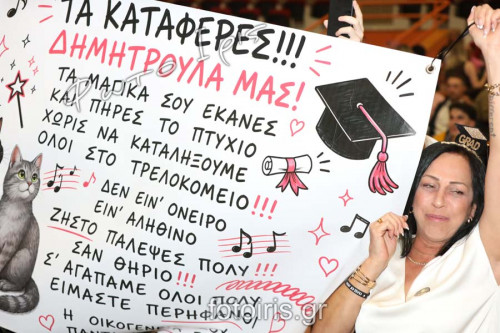 ΤΑ ΚΑΤΑΦΕΡΕΣ!!!
ΔΗΜΗΤΡΟΥΛΑ ΜΑΣ!
ΤΑ ΜΑΓΙΚΑ ΣΟΥ ΕΚΑΝΕΣ
ΚΑΙ ΠΗΡΕΣ ΤΟ ΠΤΥΧΙΟ
ΧΩΡΙΣ ΝΑ ΚΑΤΑΛΗΞΟΥΜΕ
ΟΛΟΙ ΣΤΟ ΤΡΕΛΟΚΟΜΕΙΟ!!!
ΔΕΝ ΕΙΝ' ΟΝΕΙΡΟ
ΕΙΝ' ΑΛΗΘΙΝΟ
ΖΗΣΤΟ ΠΑΛΕΨΕΣ ΠΟΛΥ!
ΣΑΝ ΘΗΡΙΟ!!!
Σ' ΑΓΑΠΑΜΕ ΟΛΟΙ ΠΟΛΥ
ΕΙΜΑΣΤΕ ΠΕΡΗΦΑΝΟΙ
Η ΟΙΚΟΓΕΝΕΙΑ
GRAD
fotoiris.gr